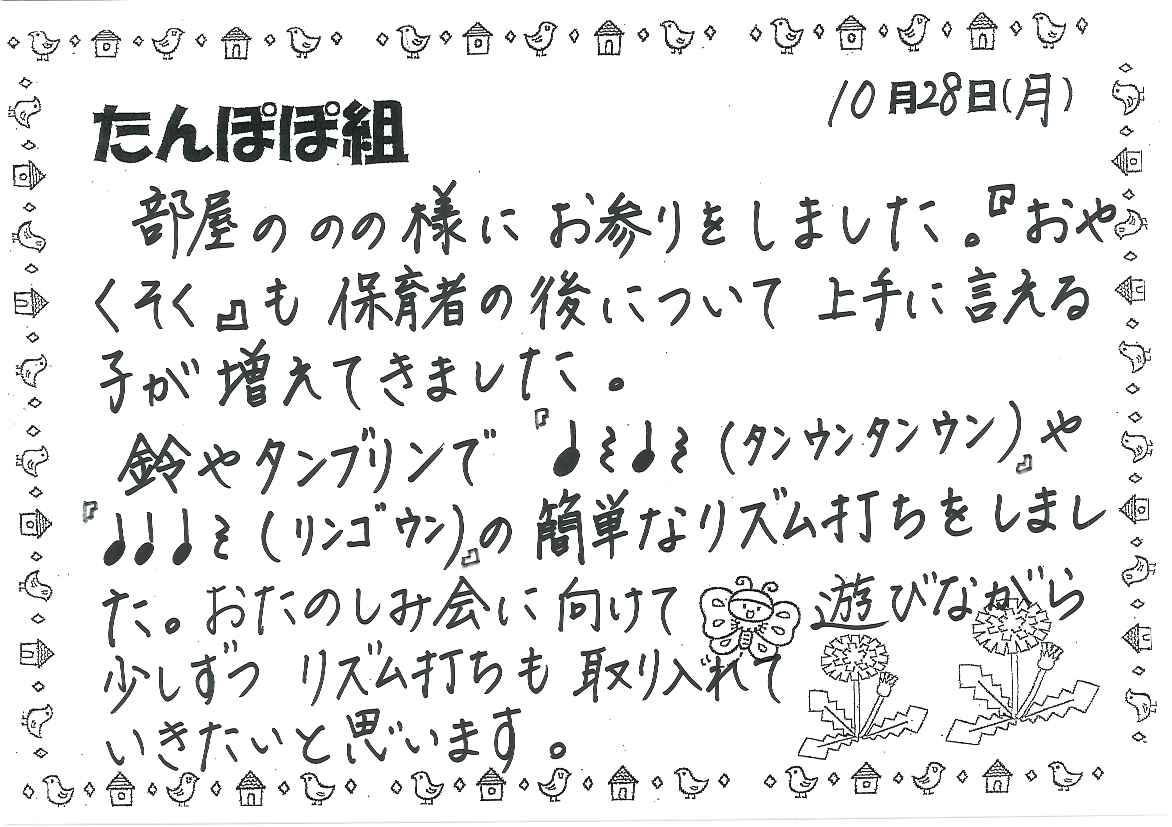 10月28日(月)
たんぽぽ組
部屋ののの様にお参りをしました。『おや
くそく』も保育者の後について上手に言える
子が増えてきました。
鈴やタンブリンで『♩𝄽♩𝄽(タンウンタンウン)』や
『♩♩♩𝄽(リンゴウン)』の簡単なリズム打ちをしまし
た。おたのしみ会に向けて遊びながら
少しずつリズム打ちも取り入れて
いきたいと思います。